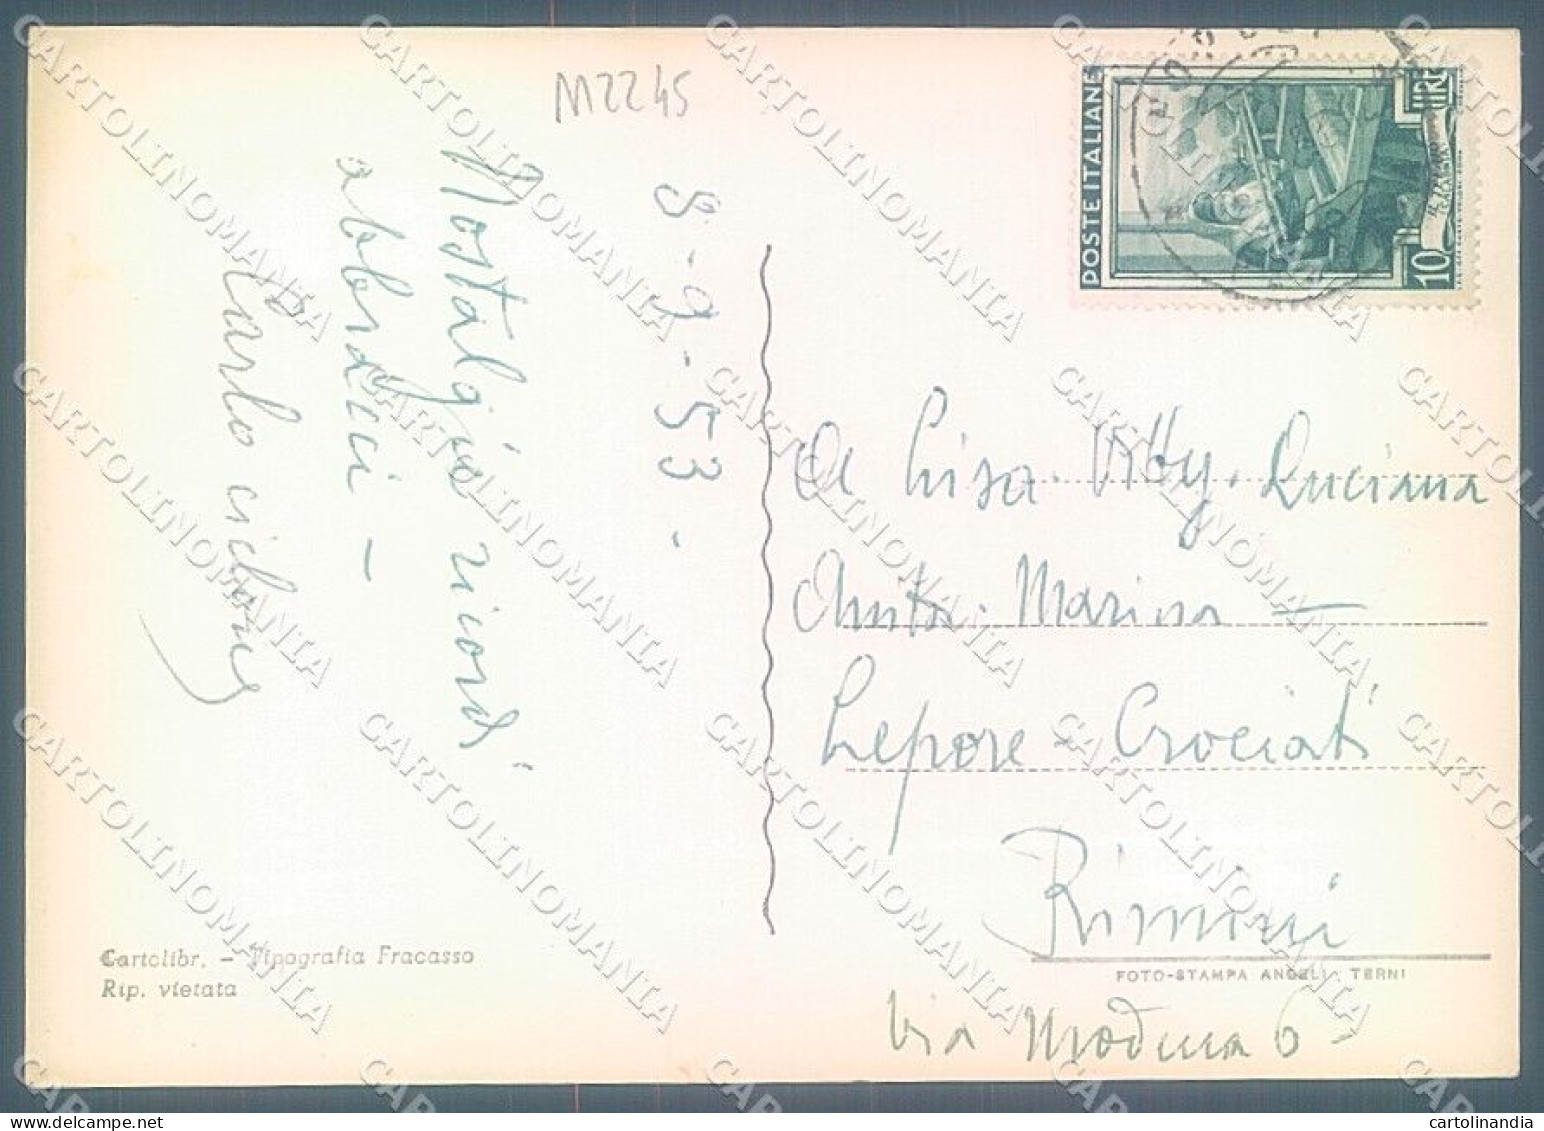 M2245
8-9-53.
Nostalgici ricordi
abbracci -
Carlo
A Lisa. Vitty. Luciana
Anita. Marina -
Lepore - Crociati
Rimini
Via Modena 6
POSTE ITALIANE
10 LIRE
Cartolibr. - Tipografia Fracasso
Rip. vietata
FOTO-STAMPA ANGELI - TERNI
CARTOLINOMANIA
cartolinandia